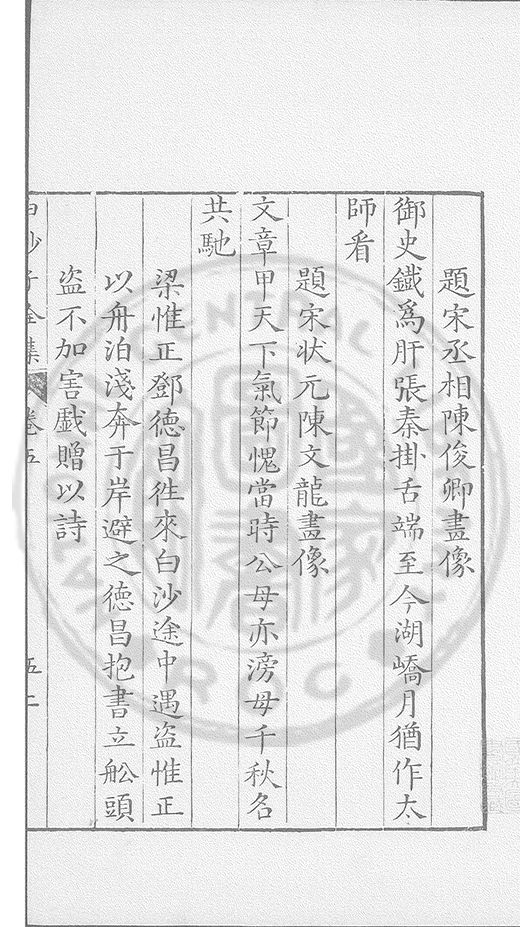 題宋丞相陳俊卿畫像
御史鐵爲肝張秦掛舌端至今湖嶠月猶作太
師看
題宋狀元陳文龍畫像
文章甲天下氣節愧當時公母亦滂母千秋名
共馳
梁惟正鄧德昌徃來白沙途中遇盜惟正
以舟泊淺奔于岸避之德昌抱書立舩頭
盜不加害戲贈以詩
白沙子全集
卷五
五二
CENTRAL